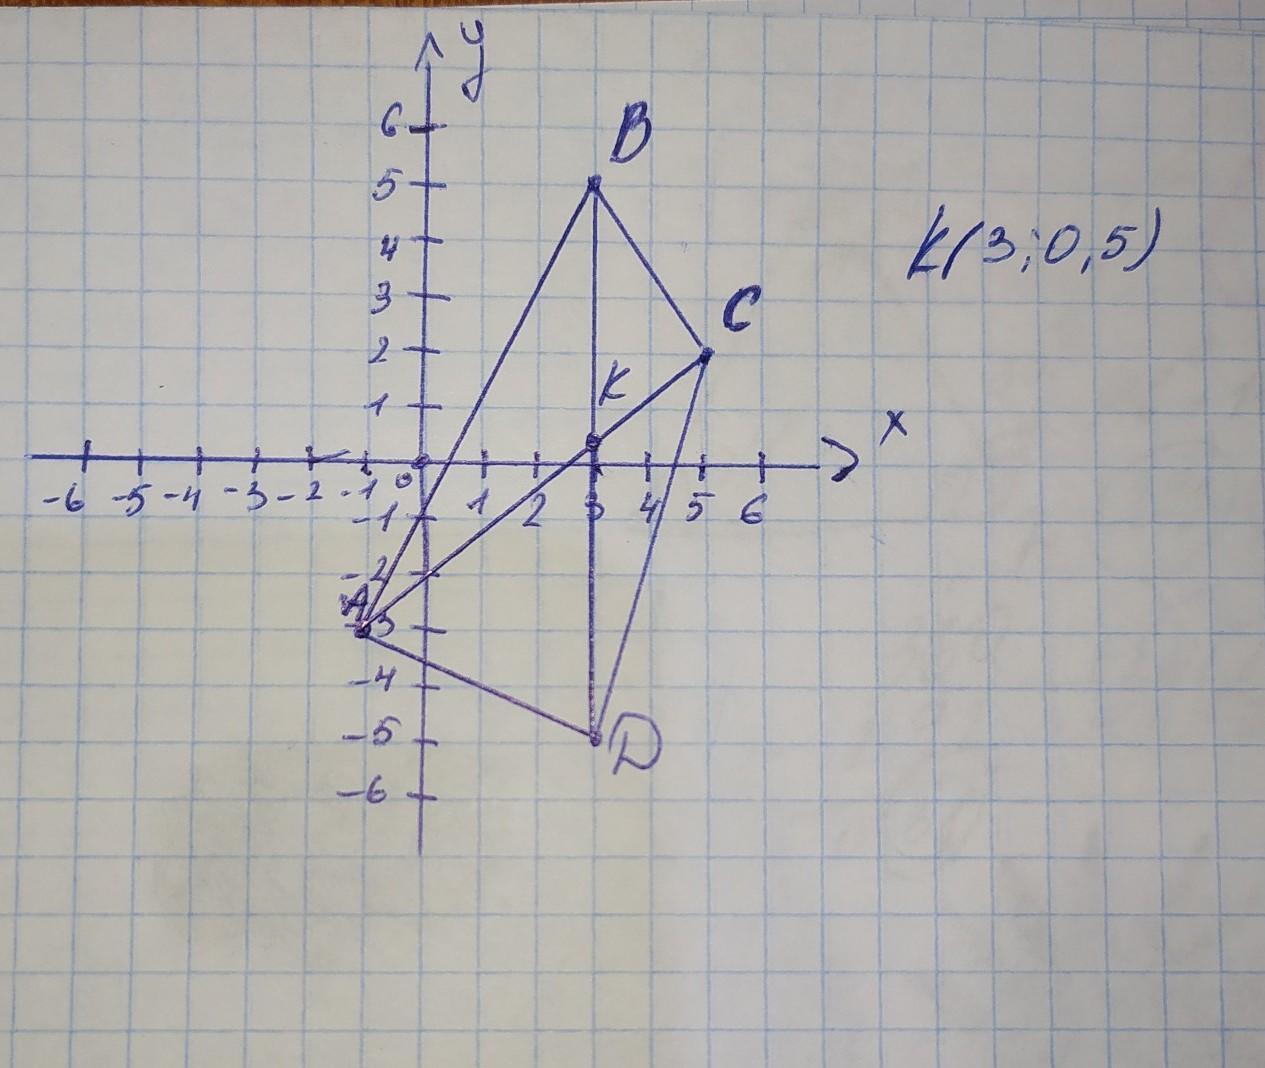 y
6
B
5
4
K(3;0,5)
3
C
2
K
1
x
-6 -5 -4 -3 -2 -1 0 1 2 3 4 5 6
-1
-2
A
-3
-4
-5
D
-6